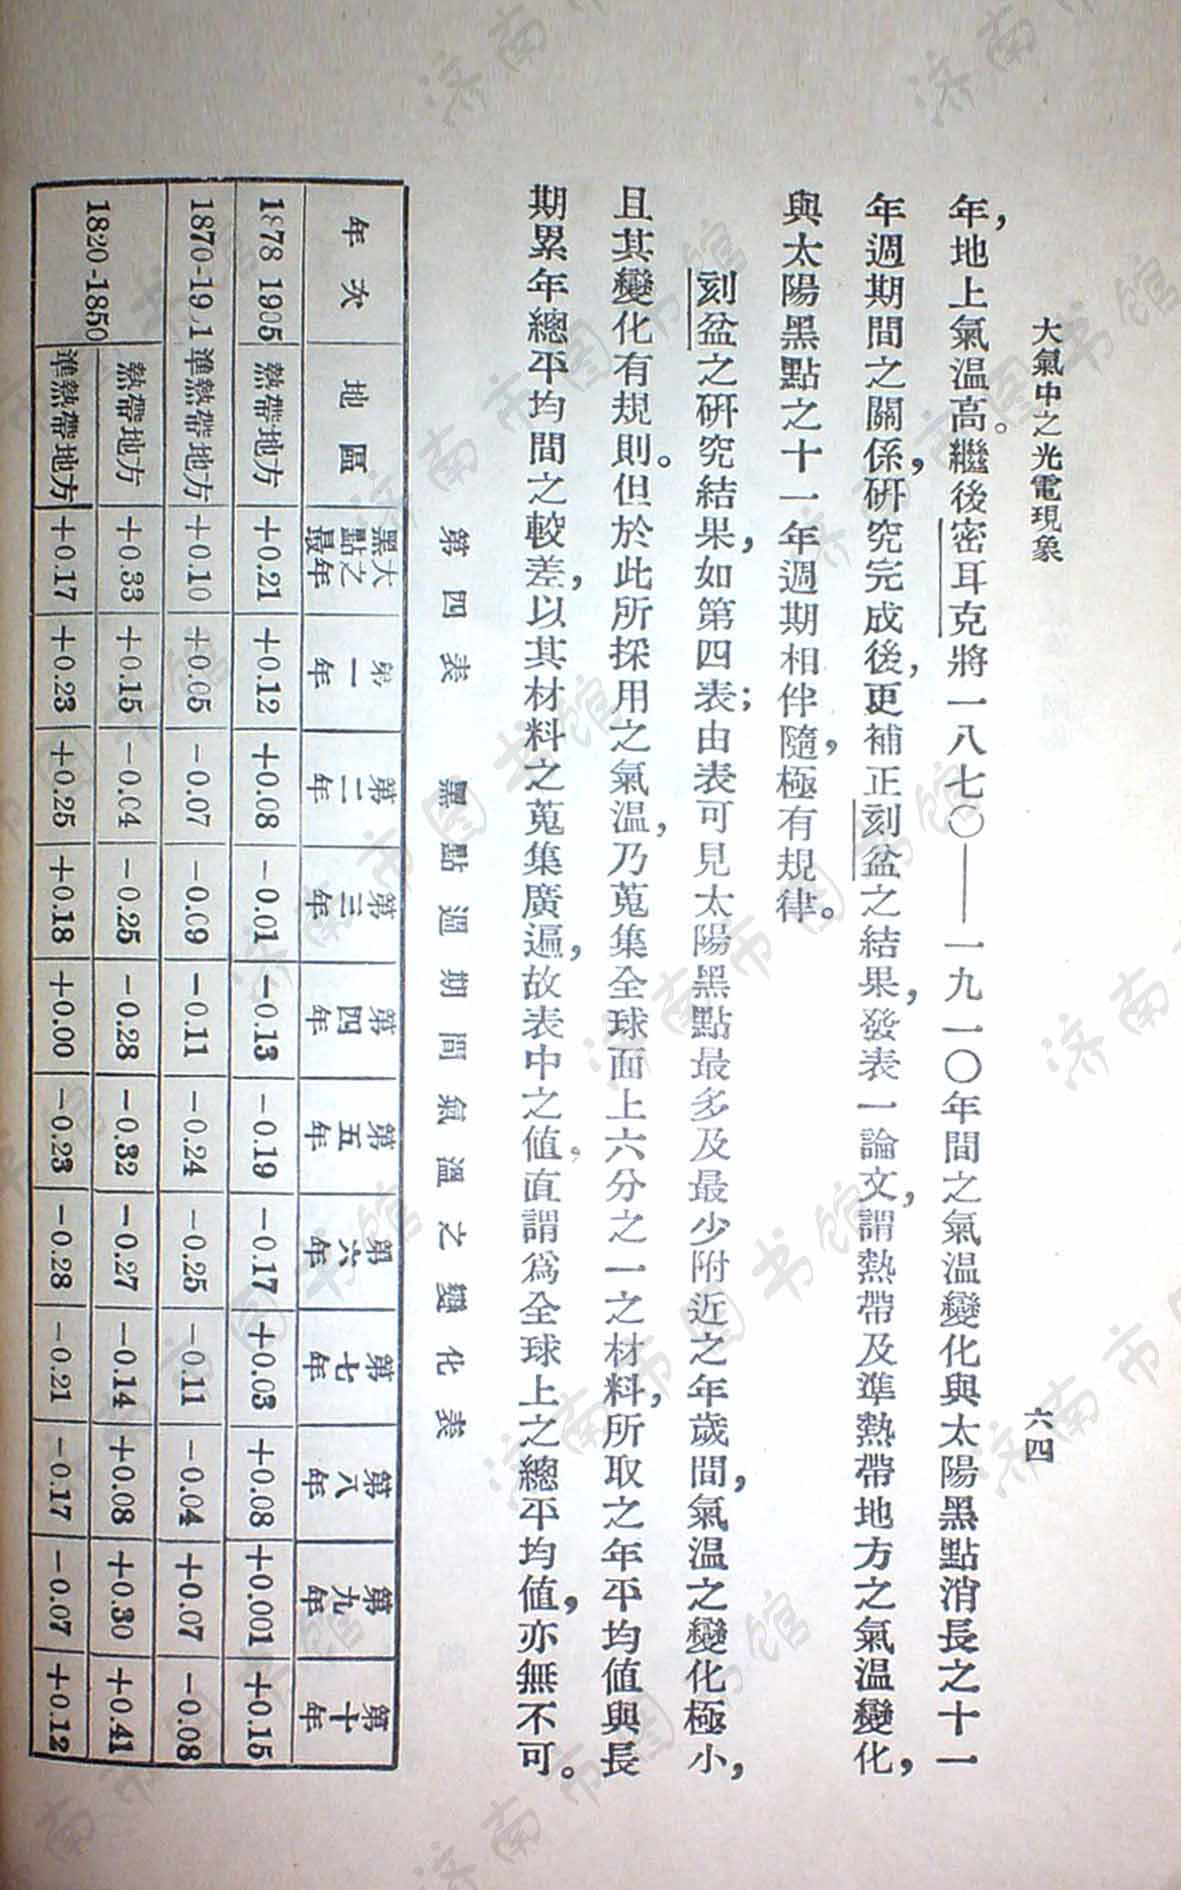 大氣中之光電現象
六四
年,地上氣溫高。繼後密耳克將一八七〇——一九一〇年間之氣溫變化與太陽黑點消長之十一
年週期間之關係,研究完成後,更補正刻盆之結果,發表一論文,謂熱帶及準熱帶地方之氣溫變化,
與太陽黑點之十一年週期相伴隨,極有規律。
刻盆之研究結果,如第四表;由表可見太陽黑點最多及最少附近之年歲間,氣溫之變化極小,
且其變化有規則。但於此所採用之氣溫,乃蒐集全球面上六分之一之材料,所取之年平均值與長
期累年總平均間之較差,以其材料之蒐集廣遍,故表中之值。直謂爲全球上之總平均值,亦無不可。
第四表 黑點週期間氣溫之變化表
年次 地區 黑點之最大年 第一年 第二年 第三年 第四年 第五年 第六年 第七年 第八年 第九年 第十年
1878 1905 熱帶地方 +0.21 +0.12 +0.08 -0.01 -0.13 -0.19 -0.17 +0.03 +0.08 +0.001 +0.15
1870-1911 準熱帶地方 +0.10 +0.05 -0.07 -0.09 -0.11 -0.24 -0.25 -0.11 -0.04 +0.07 -0.08
1820-1850 熱帶地方 +0.33 +0.15 -0.04 -0.25 -0.28 -0.32 -0.27 -0.14 +0.08 +0.30 +0.41
準熱帶地方 +0.17 +0.23 +0.25 +0.18 +0.00 -0.23 -0.28 -0.21 -0.17 -0.07 +0.12
济南市图书馆